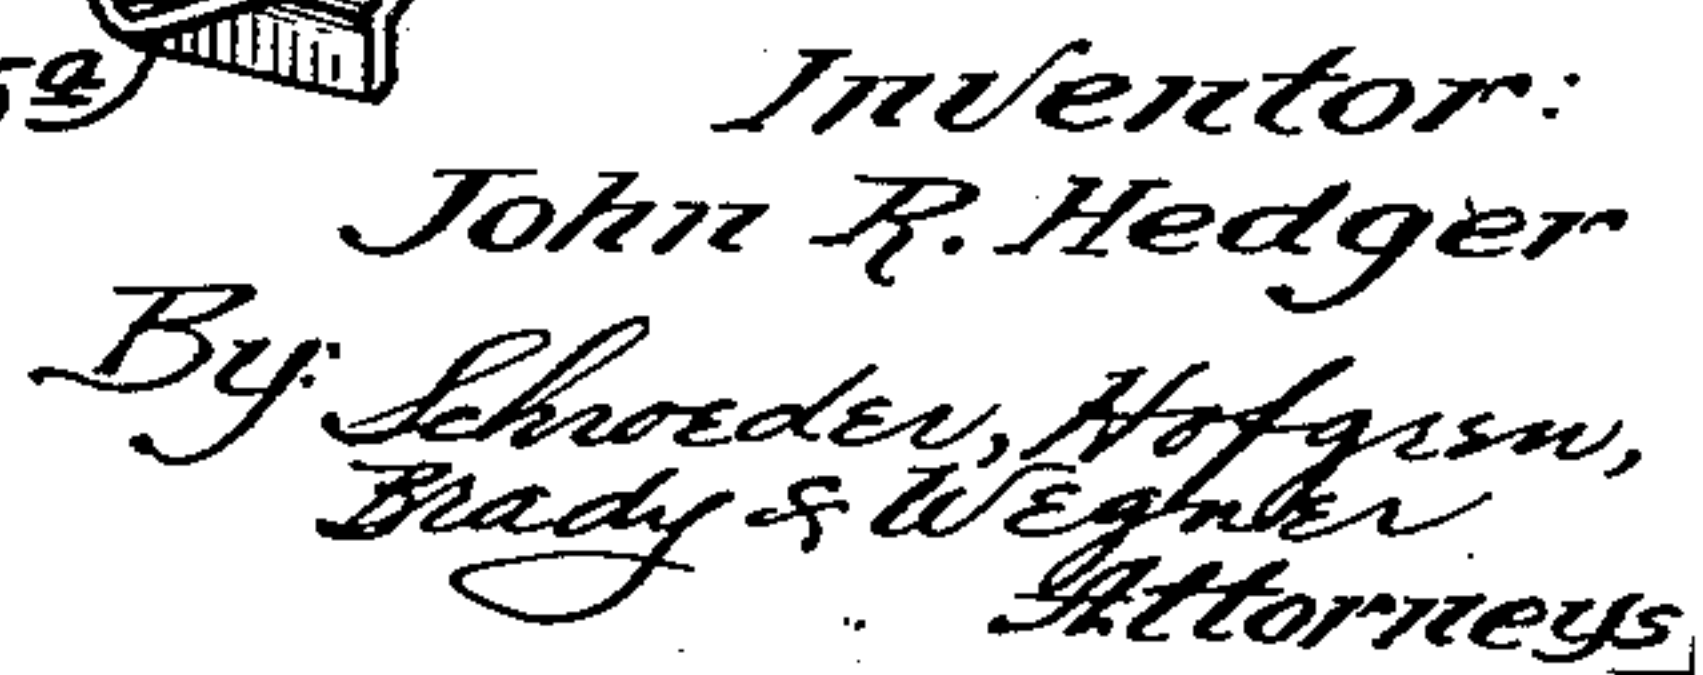 5a
Inventor:
John R. Hedger
By:
Schroeder, Hofgren,
Brady & Wegner
Attorneys